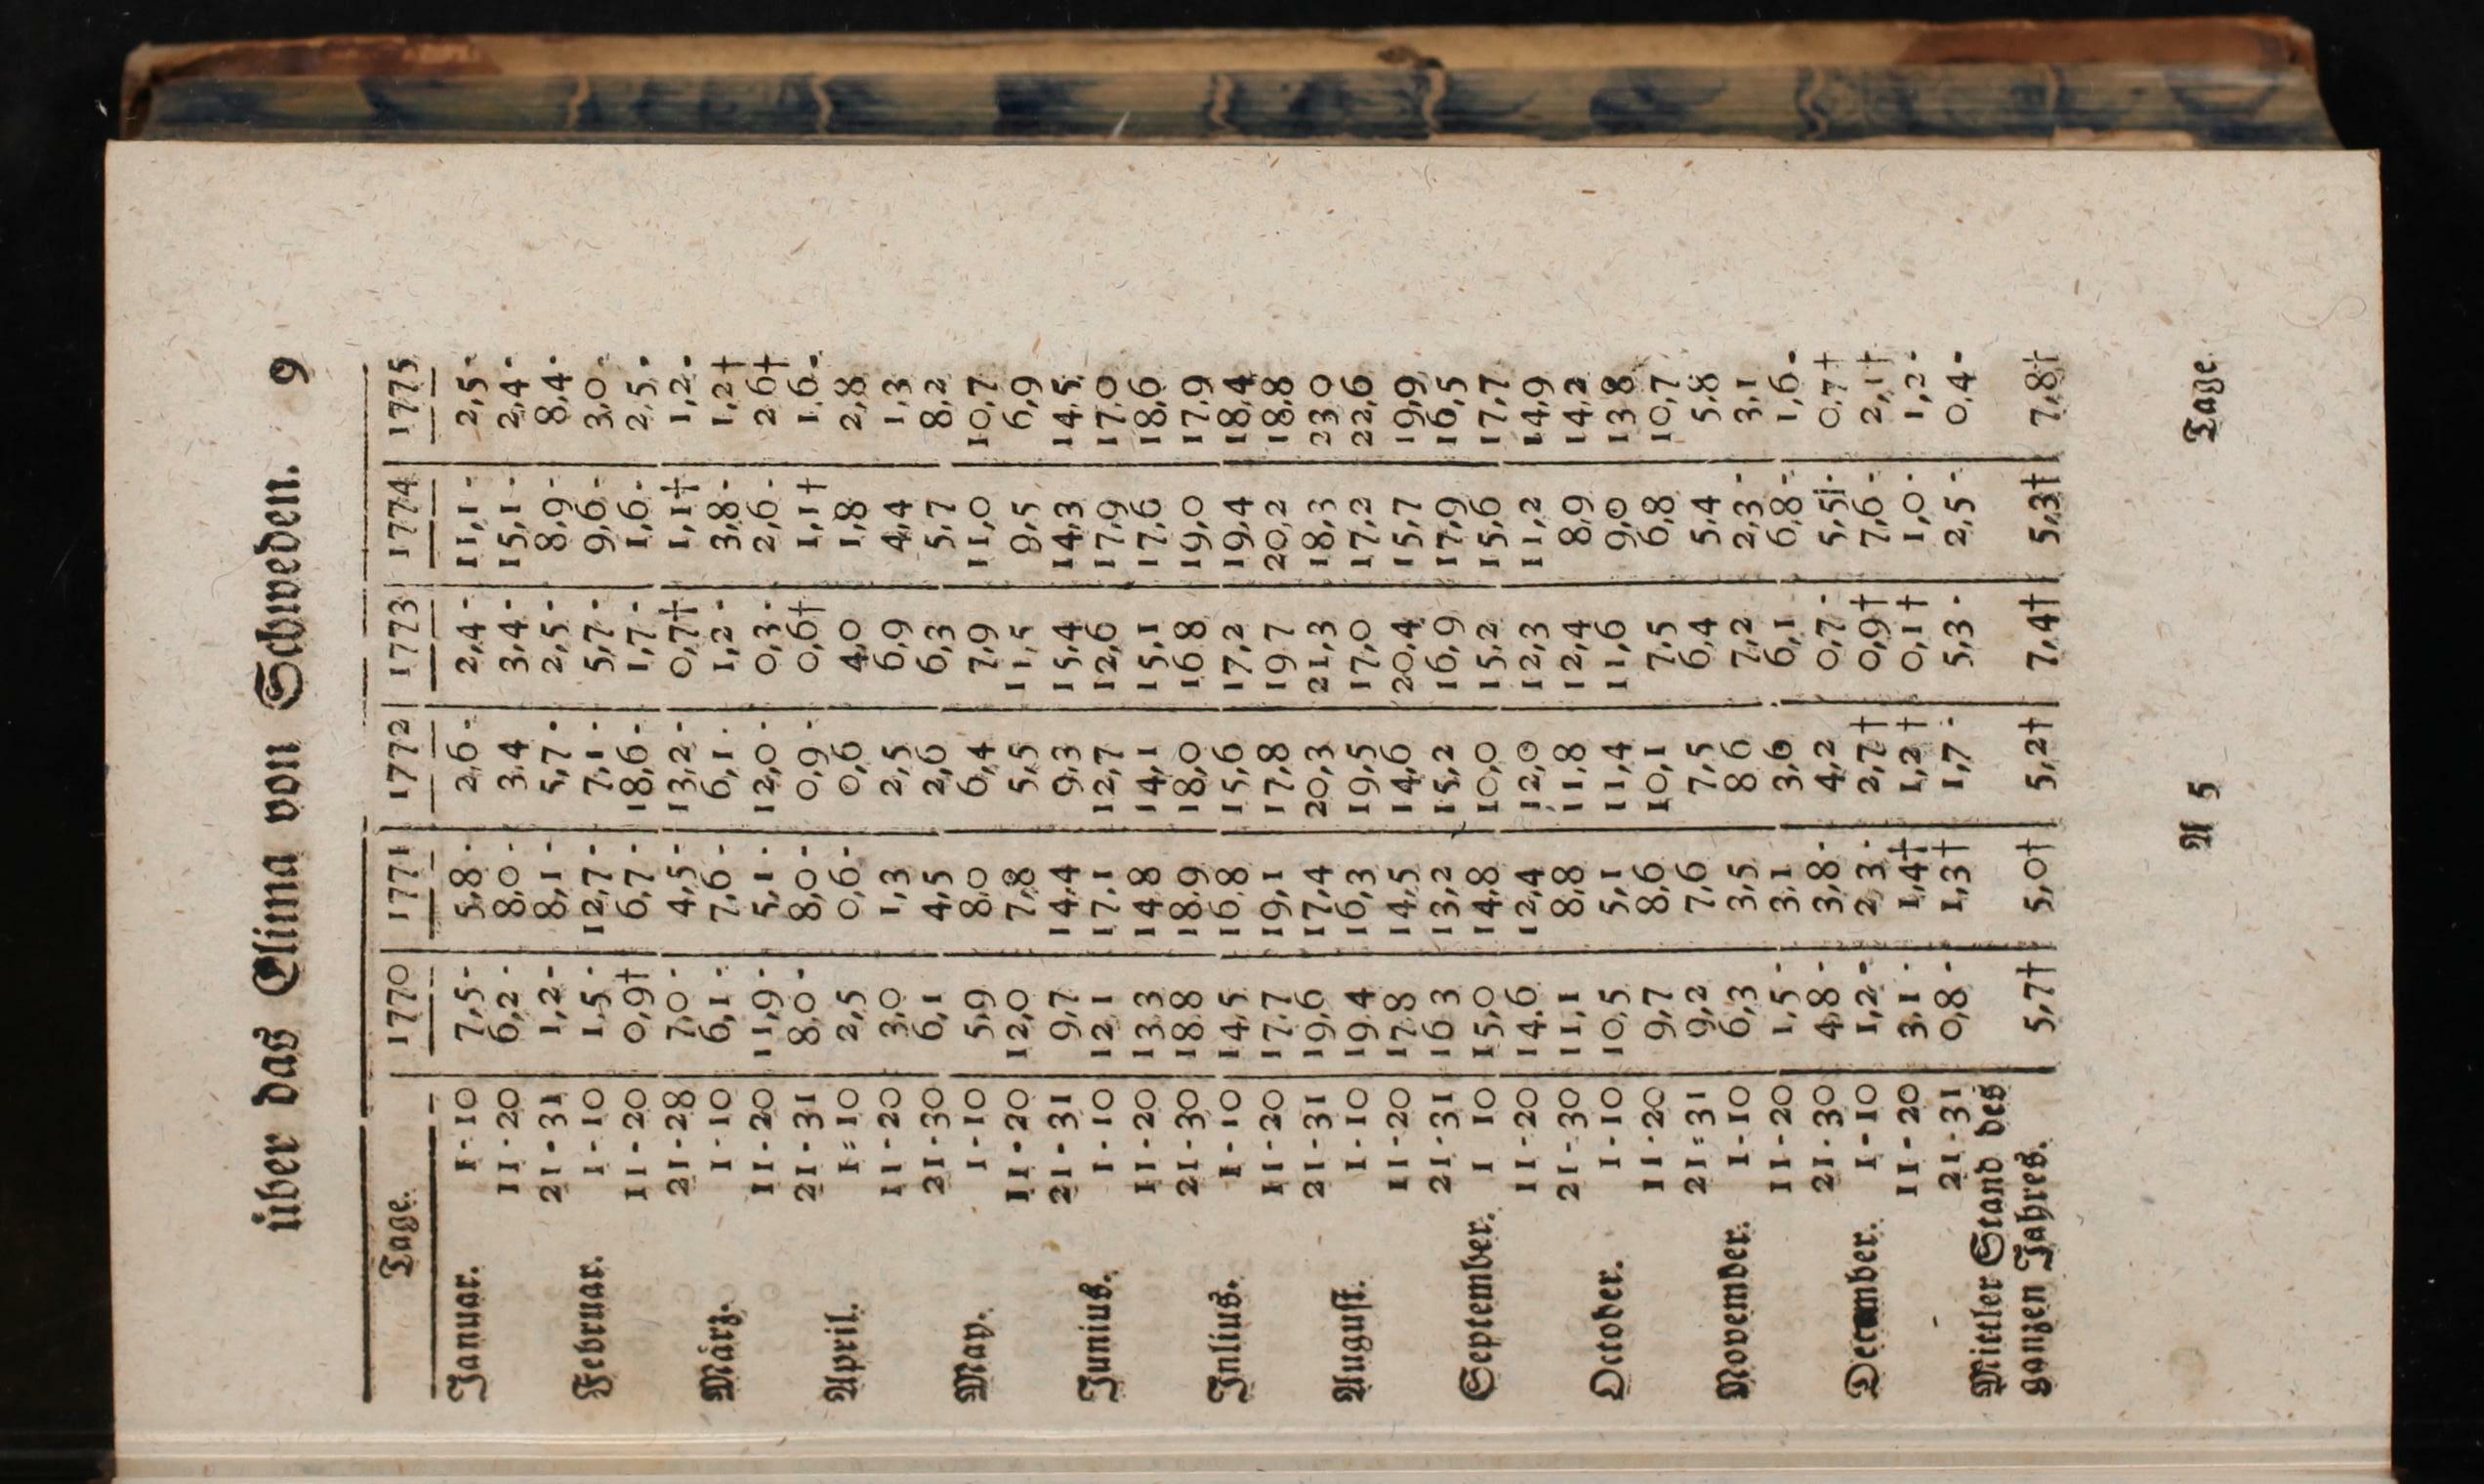 über das Clima von Schweden. 9
Tage. 1770 1771 1772 1773 1774 1775
Januar. 1-10 7,5- 5,8- 2,6- 2,4- 11,1- 2,5-
11-20 6,2- 8,0- 3.4 3,4- 15,1- 2,4-
21-31 1,2- 8,1- 5,7- 2,5- 8,9- 8,4-
Februar. 1-10 1,5- 12,7- 7,1- 5,7- 9,6- 3,0-
11-20 0,9† 6,7- 18,6- 1,7- 1,6- 2,5-
21-28 7,0- 4,5- 13,2- 0,7† 1,1† 1,2-
März. 1-10 6,1- 7,6- 6,1- 1,2- 3,8- 1,2†
11-20 11,9- 5,1- 12,0- 0,3- 2,6- 2 6†
21-31 8,0- 8,0- 0,9- 0,6† 1,1† 1,6-
April. 1=10 2,5 0,6- 0,6 4,0 1,8 2,8
11-20 3,0 1,3 2,5 6,9 4,4 1,3
21-30 6,1 4,5 2,6 6,3 5,7 8,2
May. 1-10 5,9 8,0 6,4 7,9 11,0 10,7
11-20 12,0 7,8 5,5 11,5 9,5 6,9
21-31 9,7 14,4 9,3 15,4 14,3 14,5
Junius. 1-10 12,1 17,1 12,7 12,6 17,9 17,0
11-20 13,3 14,8 14,1 15,1 17,6 18,6
21-30 18,8 18,9 18,0 16 8 19,0 17,9
Julius. 1-10 14,5 16,8 15,6 17,2 19,4 18,4
11-20 17,7 19,1 17,8 19 7 20,2 18,8
21-31 19,6 17,4 20,3 21,3 18,3 23 0
August. 1-10 19 4 16,3 19,5 17,0 17,2 22,6
11-20 17,8 14,5 14,6 20,4 15,7 19,9
21-31 16 3 13,2 15,2 16,9 17,9 16,5
September. 1 10 15,0 14,8 10,0 15,2 15,6 17,7
11-20 14,6 12,4 12,0 12,3 11,2 14,9
21-30 11,1 8,8 11,8 12,4 8,9 14,2
October. 1-10 10,5 5,1 11,4 11,6 9,0 13 8
11-20 9,7 8,6 10,1 7,5 6,8 10,7
21=31 9,2 7,6 7,5 6,4 5,4 5,8
November. 1-10 6,3 3,5 8 6 7,2 2,3- 3,1
11-20 1,5- 3,1 3,6 6,1 6,8- 1,6-
21-30 4,8- 3,8- 4,2 0,7- 5,5- 0,7†
December. 1-10 1,2- 2 3- 2,7† 0,9† 7,6- 2,1†
11-20 3,1- 1,4† 1,2† 0,1† 1,0- 1,2-
21-31 0,8- 1,3† 1,7- 5,3- 2,5- 0,4-
Mittler Stand des
ganzen Jahres. 5,7† 5,0† 5,2† 7,4† 5,3† 7,8†
A 5 Tage